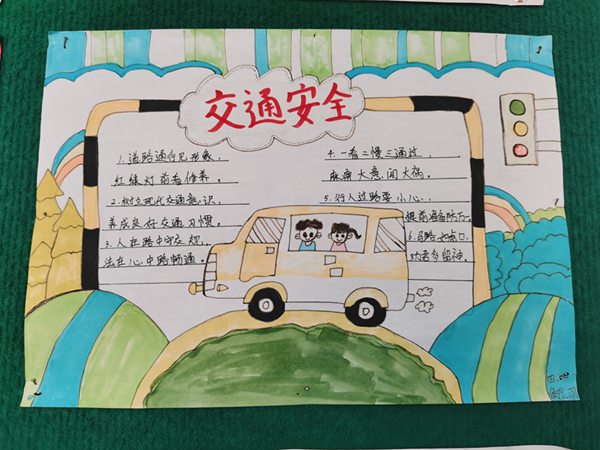 交通安全
1.道路通行见形象，
红绿灯前看修养。
2.树立现代交通意识，
养成良好交通习惯。
3.人在路中守交规，
法在心中路畅通。
4.一看二慢三通过，
麻痹大意闯大祸。
5.行人过路要小心，
提前准备防万一
6.马路
多留神。